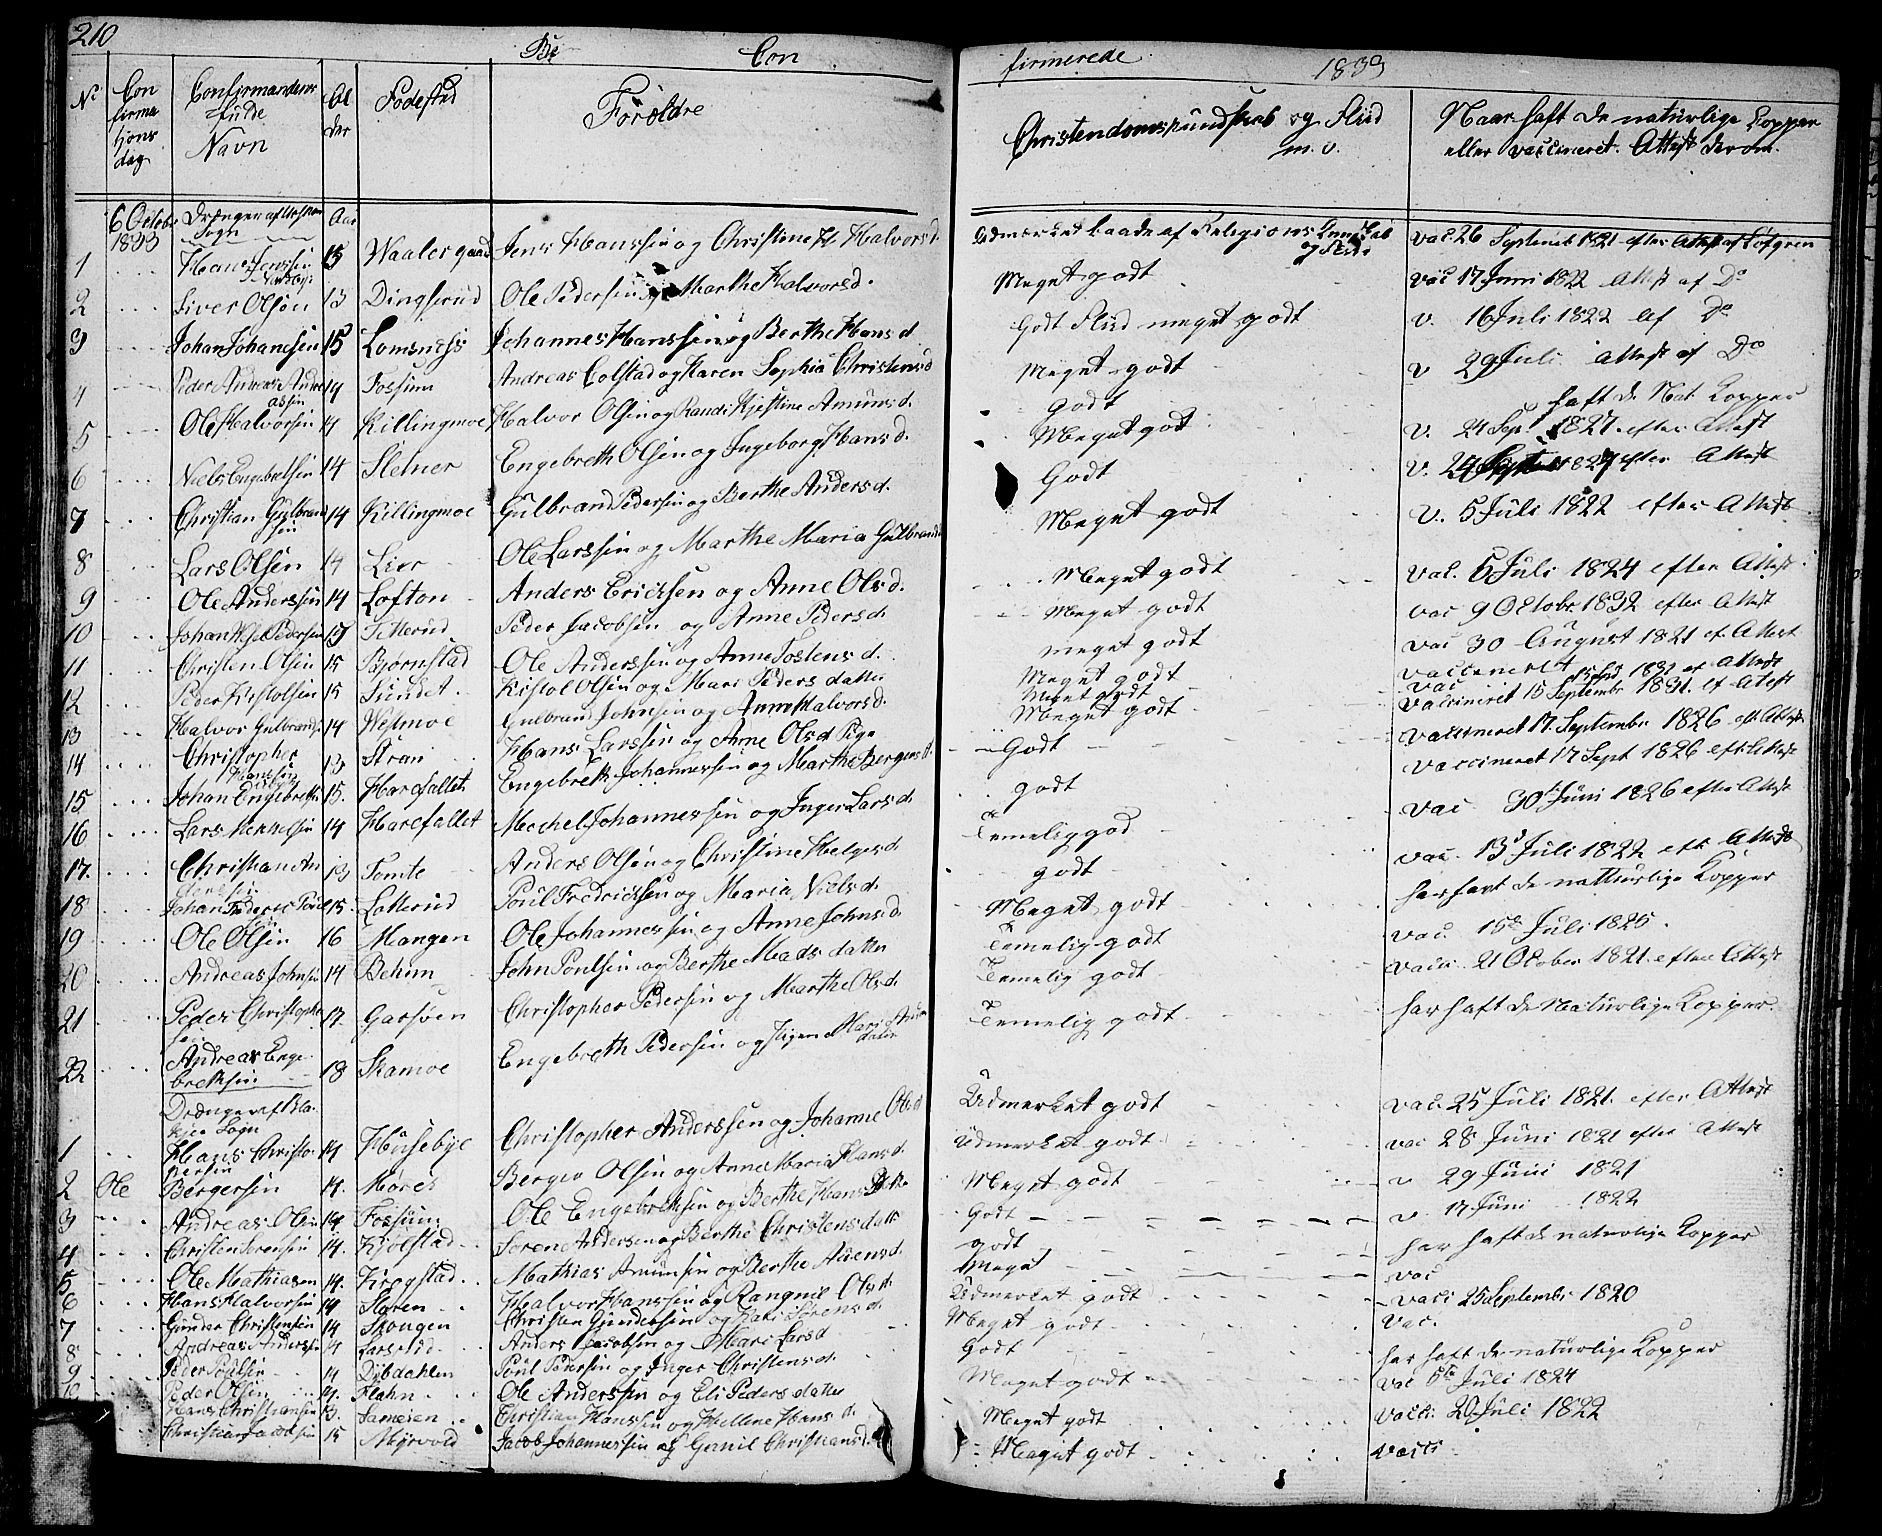 210
Con
firmerede
1833
No
Con firma tions dag
Confirmandens fulde Navn
Al der
Fødested
Forældre
Christendomskundskab og Flid m. v.
Naar haft de naturlige Kopper eller vaccineret. Attest derom.
6 October 1833 Drænger af
Sogn
Aar
1 Hans Jenssen 15 Waaler gaard Jens Hanssen og Christine H. Halvorsd. Udmærket baade af Religions Kundskab og Flid vac. 26 Septemb 1821 efter Attest af Løfgren
2 Siver Olsen 15 Dingsrud Ole Pedersen og Marthe Halvorsd. Meget godt vac 17 Juni 1822 Attest af Do
3 Johan Johansen 15 Lomsness Johannes Hanssen og Berthe Hans d. Godt Flid meget godt v. 16 Juli 1822 af Do
4 Peder Andreas Andreassen 14 Fossum Andreas Colstad og Karen Sophia Christensd Meget godt v 29 Juli Attest af Do
5 Ole Halvorsen 14 Killingmoe Halvor Olsen og Randi Kjestine Amunsd. Godt haft de Nat. Kopper
6 Niels Engebretsen 14 Sletner Engebreth Olsen og Ingeborg Hansd. Meget godt v. 24 Sept 1827 efter Attest
7 Christian Gulbrandsen 14 Killingmoe Gulbrand Pedersen og Berthe Andersd. Godt v. 24 efter Attest
8 Lars Olsen 14 Lier Ole Larssen og Marthe Maria Gulbrandsd Meget godt v. 5 Juli 1822 efter Attest
9 Ole Anderssen 14 Lofton Anders Ericksen og Anne Olsd. Meget godt vac. 5 Juli 1824 efter Attest
10 Johan Pedersen Titterud Peder Jacobsen og Anne Peders d. Meget godt vac 9 Octobr 1832 efter Attest
11 Christen Olsen 15 Bjørnstad Ole Anderssen og Anne Tostens d. meget godt vac 30 August 1821 ef Attest
12 Peder Kristolsen 15 Sundet Kristol Olsen og Mari Peders datter Meget godt vaccineret
13 Halvor Gulbrands 14 Westmoe Gulbrand Johnsen og Anne Halvorsd. Meget godt vaccineret 15 Septembr 1831 ef Attest
14 Christopher Hanssen 15 Stran Hans Larssen og Anne Olsd Pige Godt vaccineret 17 Septembr 1826 eft Attest
15 Johan Engebreth 15. Harefallet Engebreth Johannessen og Marthe Bergersd godt vaccineret 17 Sept 1826 eft Attest
16 Lars Mekkelsen 14 Harefallet Mechel Johannessen og Inger Larsd. Temelig god vac 30te Juni 1826 efter Attest
17. Christian An 15 Tomte Anders Olsen og Christine Helgesd. godt vac. 13 Juli 1822 eft Attest
18 Johan Frederic Poul 15. Latterud Poul Fredricksen og Maria Niels d. Meget godt har havt de naturlige Kopper
19 Ole Olsen 16 Mangen Ole Johannessen og Anne Johnsd. Temelig godt vac. 15de Juli 1825.
20 Andreas Johnsen 14 Behum John Poulsen og Berthe Mads datter Temelig godt vac. 21 October 1821 efter Attest
21 Peder Christopher 17. Garsøen Christopher Pedersen og Marthe Olsd. Temelig godt har haft de Naturlige Kopper.
22 Andreas Engebretsen 18 Skamoe Engebreth Pedersen og Pigen Mari datter
Drænge af Bla kjer Sogn
1 Hans Christophersen 14 Husebye Christopher Anderssen og Johanne Olsd Udmerket godt vac. 25 Juli 1821. efter Attest
2 Ole Bergersen 14. Morer Berger Olsen og Anne Maria Hans d. Udmerket godt vac 28 Juni 1821 efter Attest
3 Andreas Olsen 14 Fossum Ole Engebretsen og Berthe Hans Meget godt v 29 Juni 1821
4 Christen Sorensen 14. Kjølstad Sorene Andersen og Berthe Christensdatt Godt v 17 Juni 1822
5 Ole Mathiasen 14. Krogstad Mathias Amunsen og Berthe d. godt har haft de naturlige Kopper
6 Hans Halvorsen 14 Haren Halvor Hanssen og Rangnil Olsd. Meget vac
7 Gunder Christensen 14 Skougen Christen Gundersen og Kari d Udmerket godt vacc 25 September 1820
8 Andreas Anderssen Anders Jacobsen og Mari Larsd Meget godt vac.
9 Peder Poulsen 14 Dibdahlen Poul Pedersen og Inger Christensd. Godt har haft de naturlige Kopper
10 Peder Olsen 14. Flahn Ole Anderssen og Eli Peders datter Meget godt vac 5te Juli 1824
Hans Christiansen Sameien Christian Hanssen og Hellene Hans d. Meget godt vacc. 20 Juli 1822
Christian Jacobsen 15 Myrvold Jacob Johannessen og Gunil Christians d. Meget godt vacci